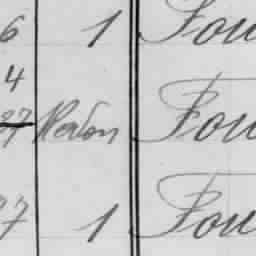 6 1 Fou
4
27 Merton Fou
7 1 Fou